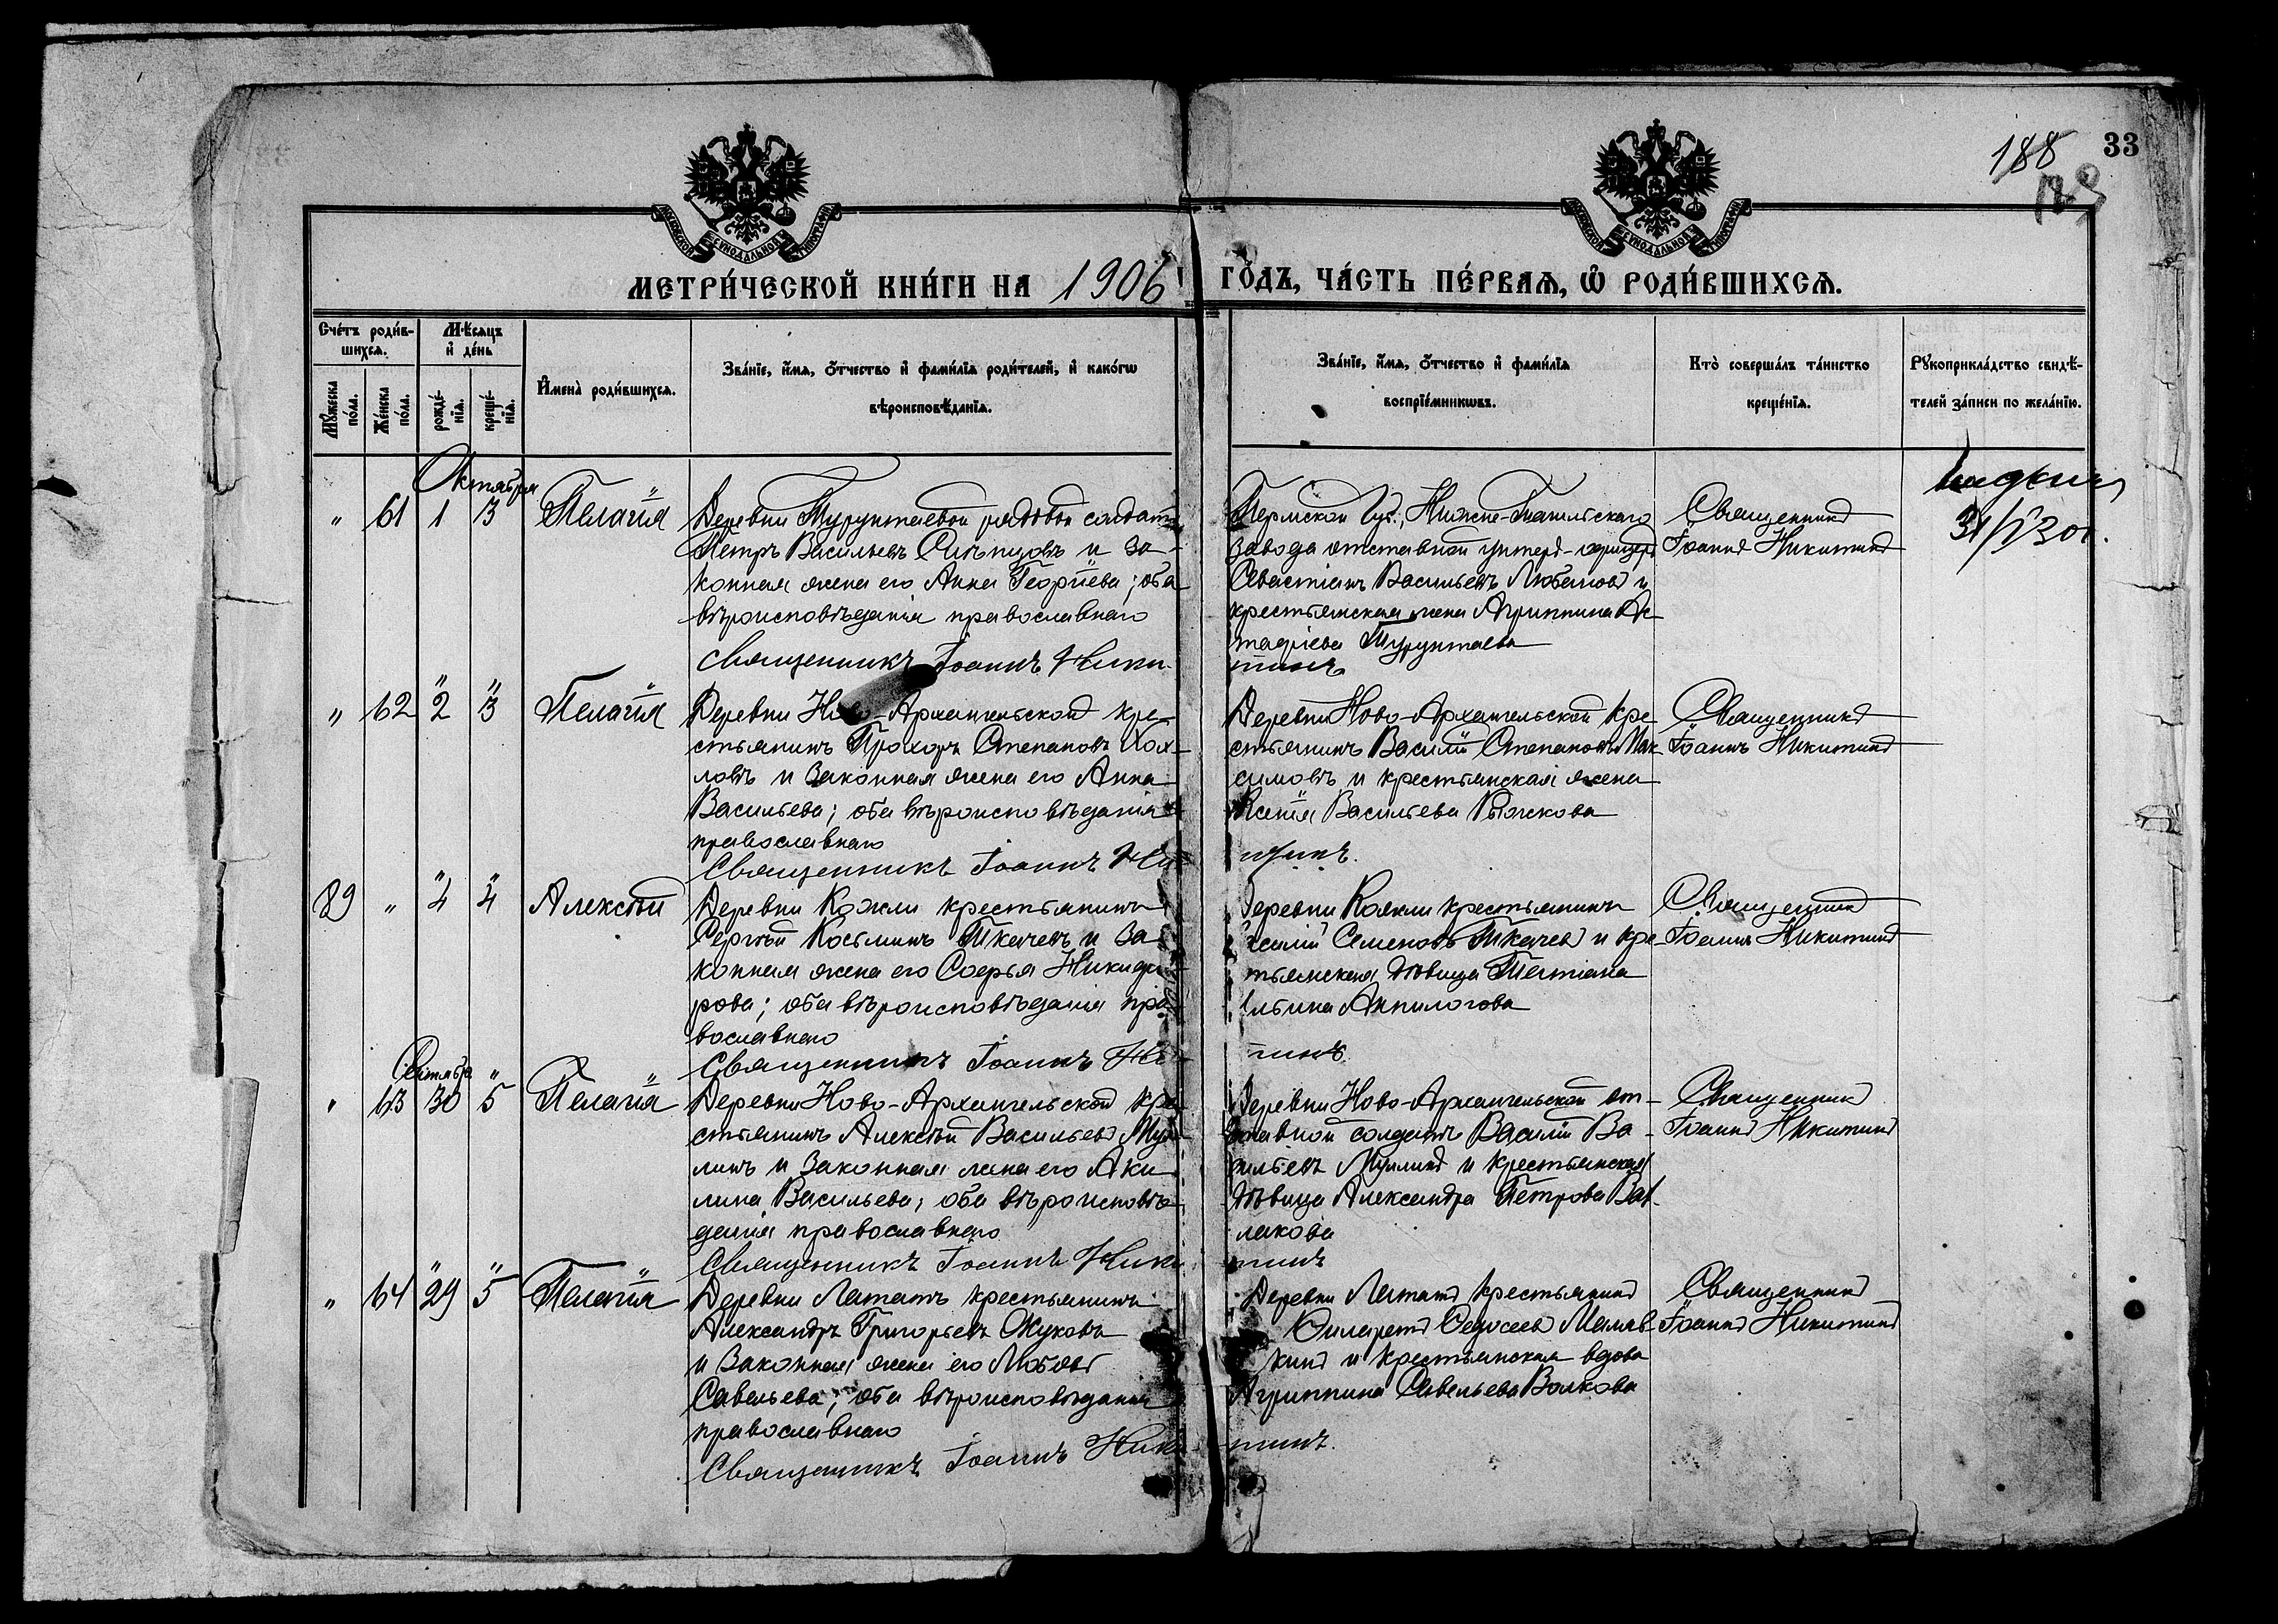 188
33
МЕТРИ́ЧЕСКОЙ КНИ́ГИ НА 1906 ГО́ДЪ, ЧА́СТЬ ПЕ́РВАѦ, Ѡ҆ РОДИ́ВШИХСѦ.
Сче́тъ роди́вшихсѧ.
Мꙋ́жеска по́ла.
Же́нска по́ла.
Мѣ́сѧцъ и҆ де́нь
рожде́нїѧ.
креще́нїѧ.
И҆мена̀ роди́вшихсѧ.
Зва́нїе, и҆́мѧ, ѻ҆́тчество и҆ фами́лїѧ роди́телей, и҆ како́гѡ
вѣроисповѣ́данїѧ.
Зва́нїе, и҆́мѧ, ѻ҆́тчество и҆ фами́лїѧ
воспрїе́мникѡвъ.
Кто̀ соверша́лъ та́инство
креще́нїѧ.
Рꙋкоприкла́дство свидѣ́-
телей за́писи по жела́нїю.
Октября
" 61 1 3 Пелагія
Деревни Турунтаевой рядовой солдатъ
Петръ Васильевъ Слѣпцовъ и за-
конная жена его Анна Георгіева; оба
вѣроисповѣданія православнаго
Священникъ Іоаннъ Ники-
тинъ
Пермской Губ., Нижне-Тагильскаго
завода отставной унтеръ-офицеръ
Севастіанъ Васильевъ и
крестьянская жена Агриппина
Турунтаева
Священникъ
Іоаннъ Никитинъ
" 62 2 3 Пелагія
Деревни Ново-Архангельской кре-
стьянинъ Прохоръ Степановъ
и законная жена его Анна
Васильева; оба вѣроисповѣданія
православнаго
Священникъ Іоаннъ Ни-
китинъ.
Деревни Ново-Архангельской кре-
стьянинъ Василій Степановъ Мак-
симовъ и крестьянская жена
Ксенія Васильева Рыжкова
Священникъ
Іоаннъ Никитинъ
89 " 4 4 Алексѣй
Деревни Кожли крестьянинъ
Сергѣй Косьминъ Ткачевъ и за-
конная жена его Софья Никифо-
рова; оба вѣроисповѣданія пра-
вославнаго
Священникъ Іоаннъ
тинъ
Деревни Кожли крестьянинъ
Семеновъ Ткачевъ и кре-
стьянская дѣвица Татіана
Ильина Анпилогова
Священникъ
Іоаннъ Никитинъ
Сентября "
" 63 30 5 Пелагія
Деревни Ново-Архангельской кре-
стьянинъ Алексѣй Васильевъ Мул-
линъ и законная жена его Аки-
лина Васильева; оба вѣроисповѣ-
данія православнаго
Священникъ Іоаннъ Ники-
тинъ
Деревни Ново-Архангельской от-
ставной солдатъ Василій Ва-
сильевъ Муллинъ и крестьянская
дѣвица Александра Петрова Вав-
лакова
Священникъ
Іоаннъ Никитинъ
" 64 29 5 Пелагія
Деревни Лататъ крестьянинъ
Александръ Григорьевъ Жуковъ
и законная жена его Любовь
Савельева; оба вѣроисповѣданія
православнаго
Священникъ Іоаннъ Ники-
тинъ.
Деревни Лататъ крестьянинъ
Филаретъ
и крестьянская вдова
Агриппина Савельева Волкова
Священникъ
Іоаннъ Никитинъ